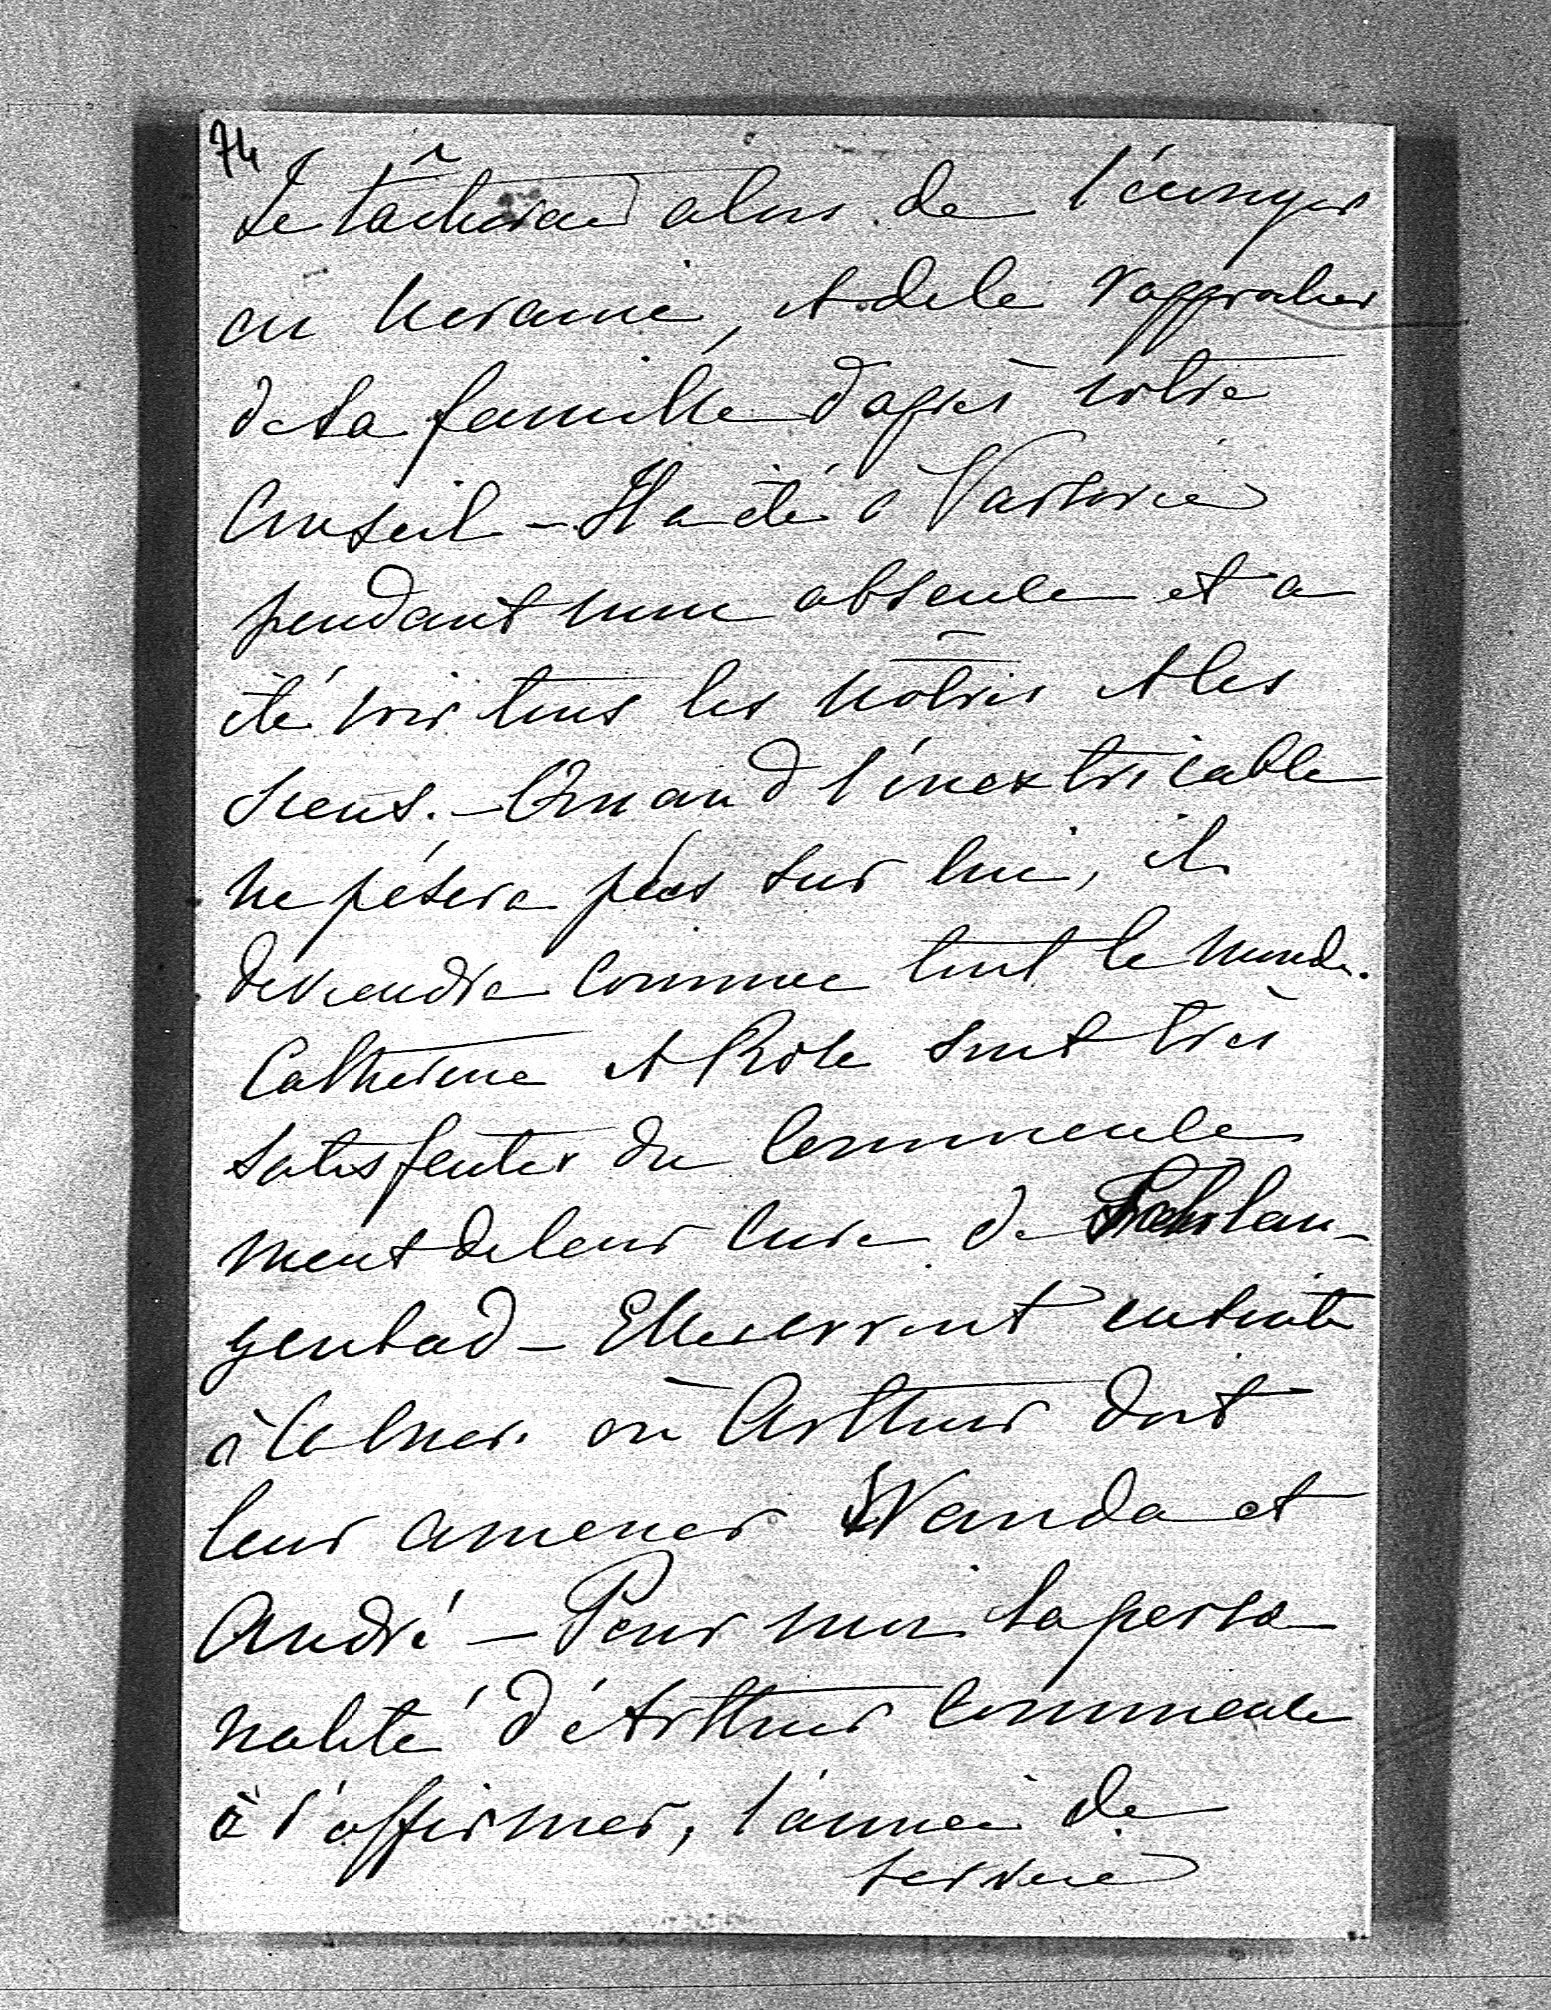 74
Je tâcherai alors de l'envoyer
en Ukraine, et de le rapprocher
de sa famille d'après votre
Conseil – Il a été à Varsovie
pendant mon absence et a
été voir tous les nôtres et les
siens. – Quand l'inextricable
ne pésera plus sur lui, il
deviendra comme tout le monde.
Catherine et Rose sont très
satisfaites du commence
ment de leur cure de Schlan-
genbad – Elles iront ensuite
à la mer. où Arthur doit
leur amener Wanda et
André – Pour moi la perso
nalité d'Arthur commence
à s'affirmer, l'année de
service